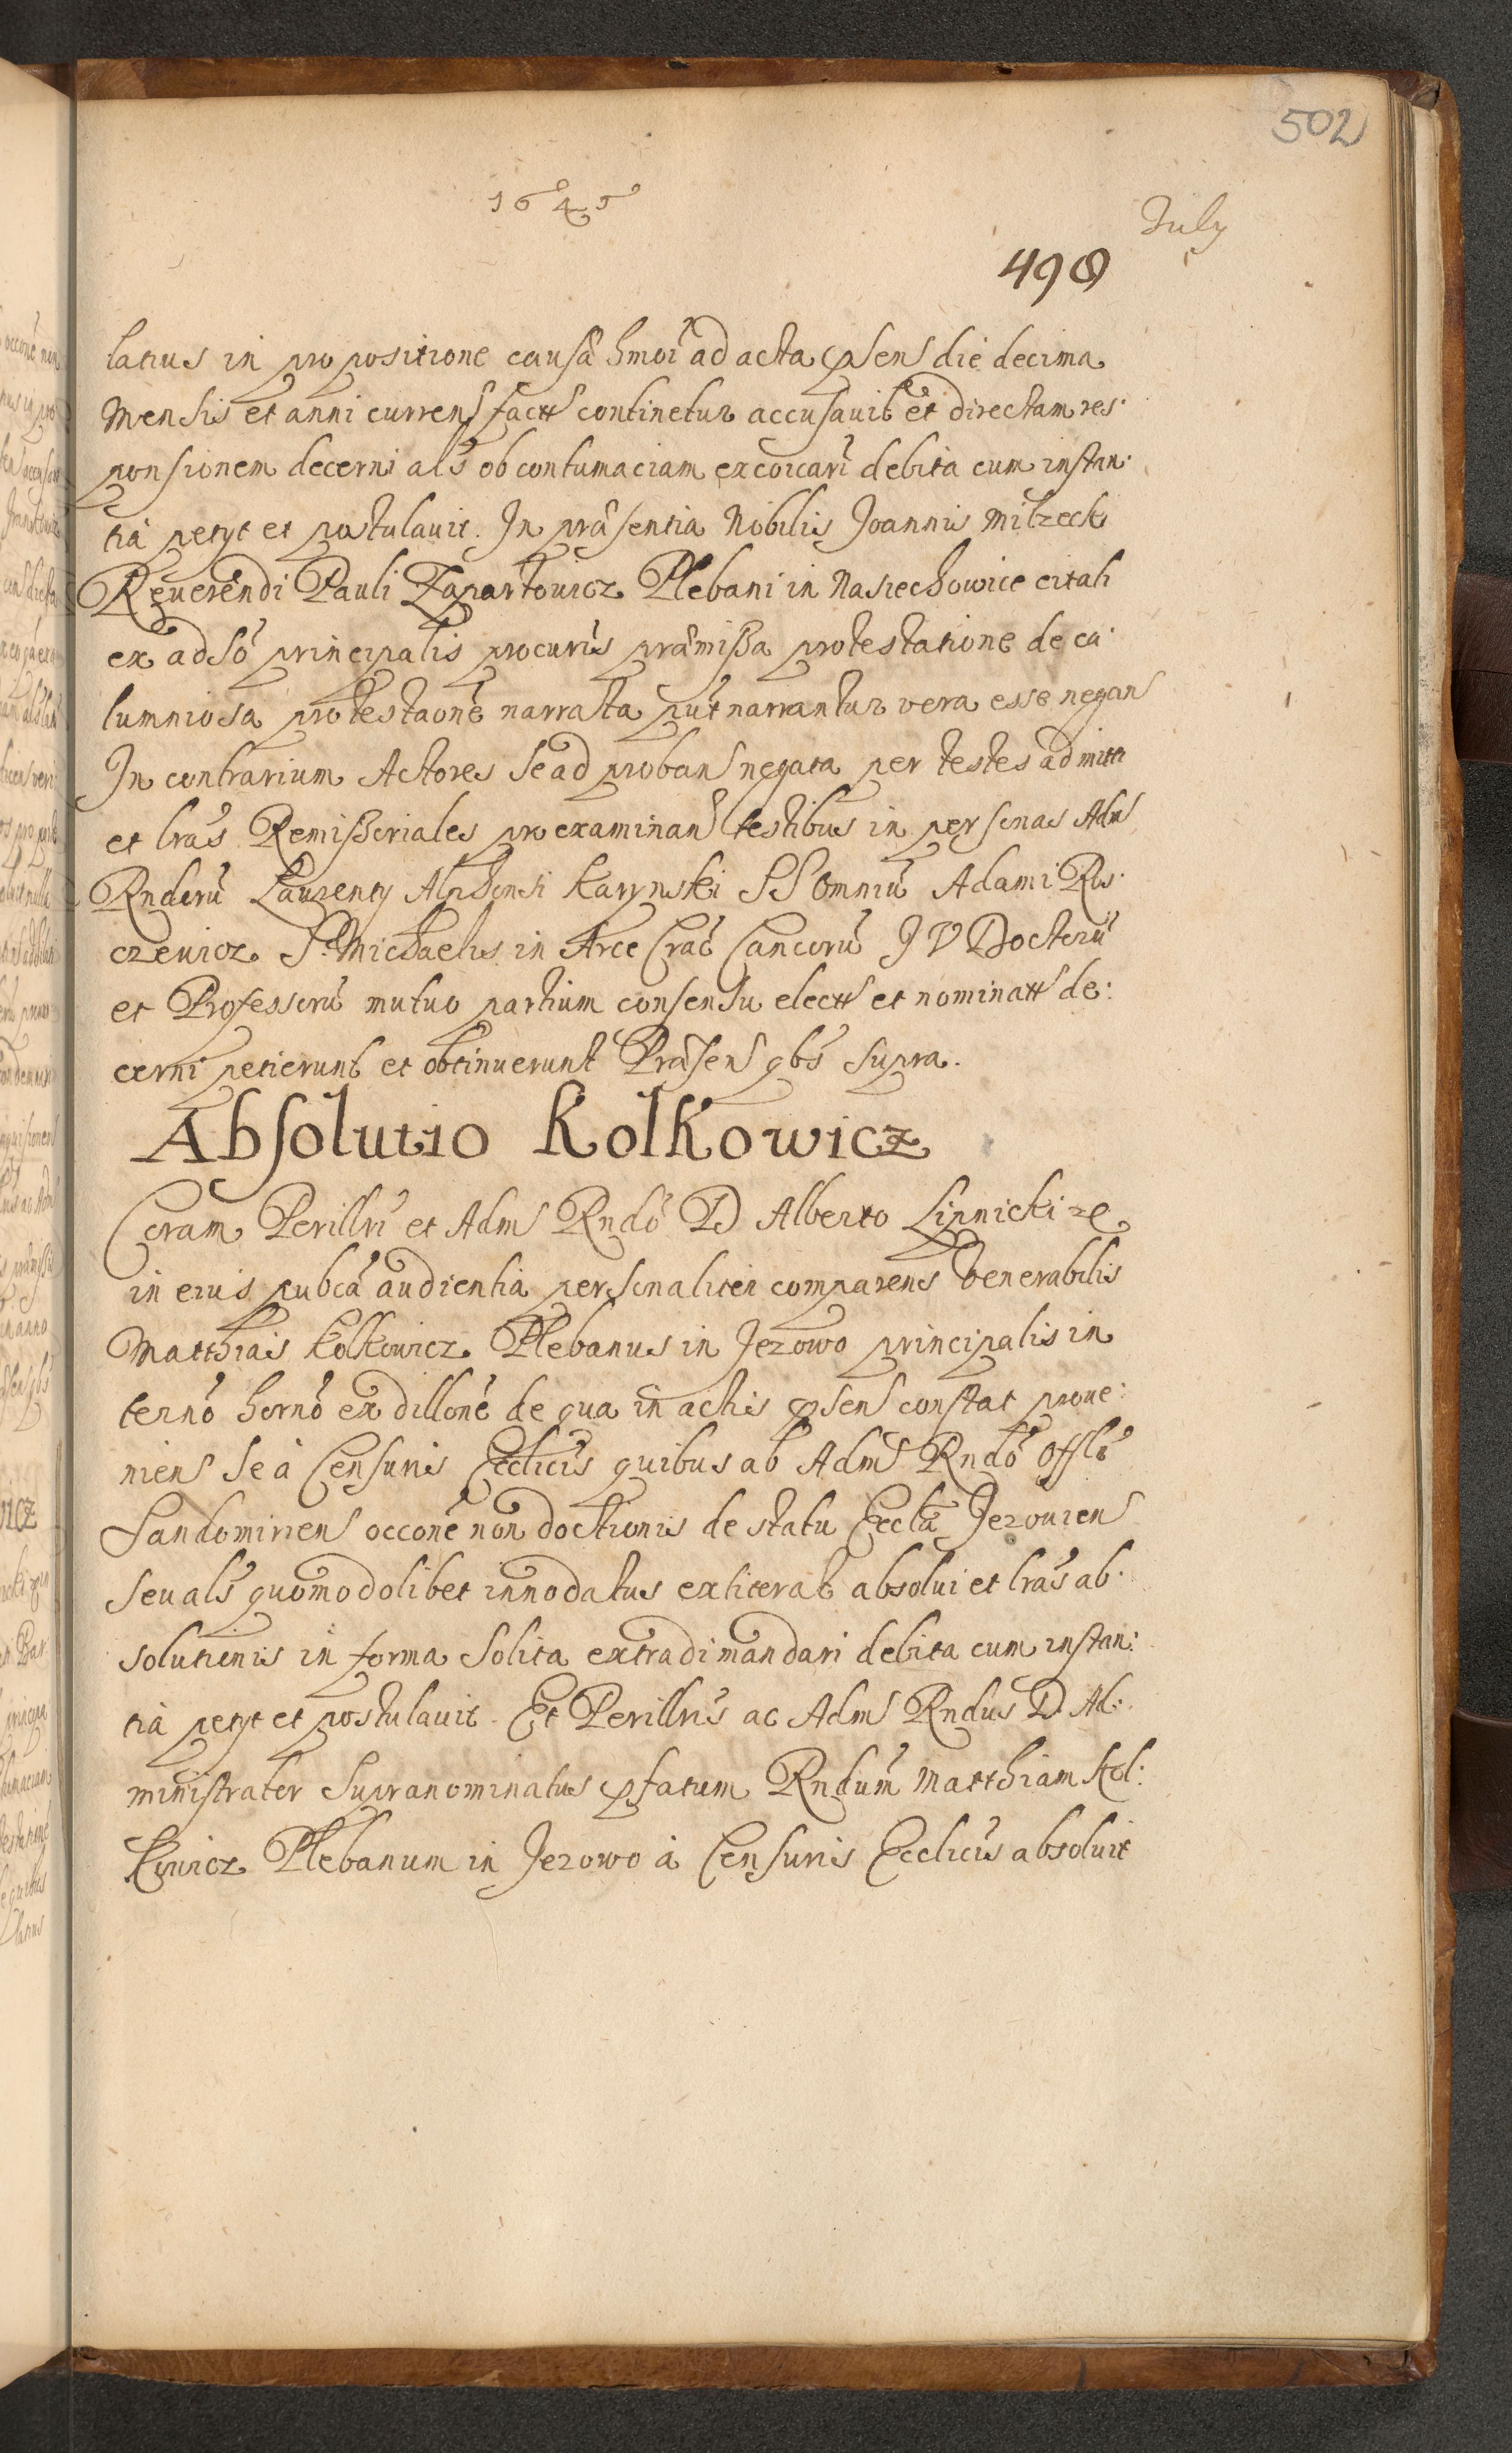 502
1645
July
498
latius in propositione causæ hmoi ad acta psens die decima
Mensis et anni currens fact continetur accusavit et directam res:
ponsionem decerni als ob contumaciam excoicari debita cum instan:
tia petyt et postulavit. In præsentia Nobilis Joannis Milzecki
Reverendi Pauli Zapartowicz Plebani in Nasiechowice citati
ex adso principalis procuris præmissa protestatione de ca:
lumniosa protestaone narrata put narrantur vera esse negans
In contrarium Actores se ad probans negata per testes admitti
et lras Remissoriales pro examinans testibus in personas Adm
Rndoru Laurenty Alphonsi Karynski SS Omniu Adami Ros:
czewicz S. Michaelis in Arce Crac Cancoru J V Doctoru
et Professoru mutuo partium consensu elect et nominatt de:
cerni petierunt et obtinuerunt Præsens qbs supra.
Absolutio Kolkowicz
Coram Perillri et Adm Rndo D Alberto Lipnicki
in eius pubca audientia personaliter comparens Venerabilis
Matthias Kolkowicz Plebanus in Jezowo principalis in
termo horno ex dillone de qua in actis psens constat prove:
niens se à Censuris Ecclicis quibus ab Adm Rndo Offli
Sandomirien occone non doctionis de statu Ecclæ Jezovien
seu als quomodolibet innodatus extiterat absolvi et lras ab:
solutionis in forma solita extradi mandari debita cum instan:
tia petyt et postulavit. Et Perillris ac Adm Rndus D. Ad:
ministrator supranominatus pfatum Rndum Matthiam Kol:
kowicz Plebanum in Jezowo à Censuris Ecclicis absolvit